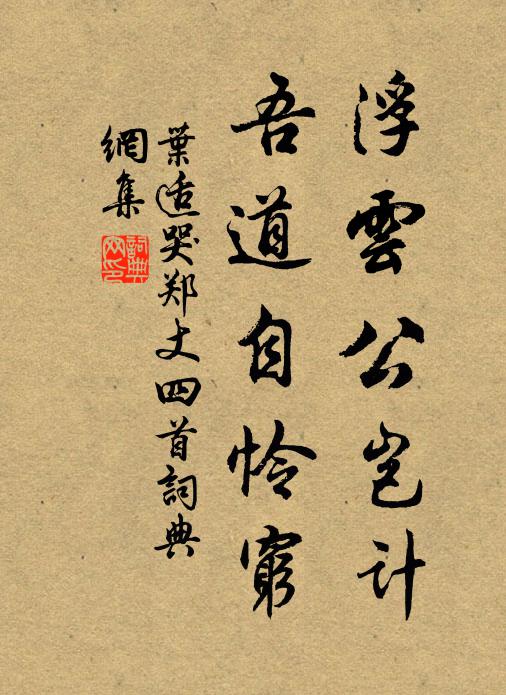 浮雲公豈計
吾道自怜窮
葉适哭郑丈四首詞典
網集
詞典
网印